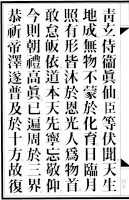 青玄侍衞真仙臣等伏聞天生
地成無物不蒙於化育日臨月
照有形皆沐於恩光人為物首
敢怠皈依道本天先寧忘敬仰
今則朝禮高真已遍周於三界
恭祈帝澤遂普及於十方故復